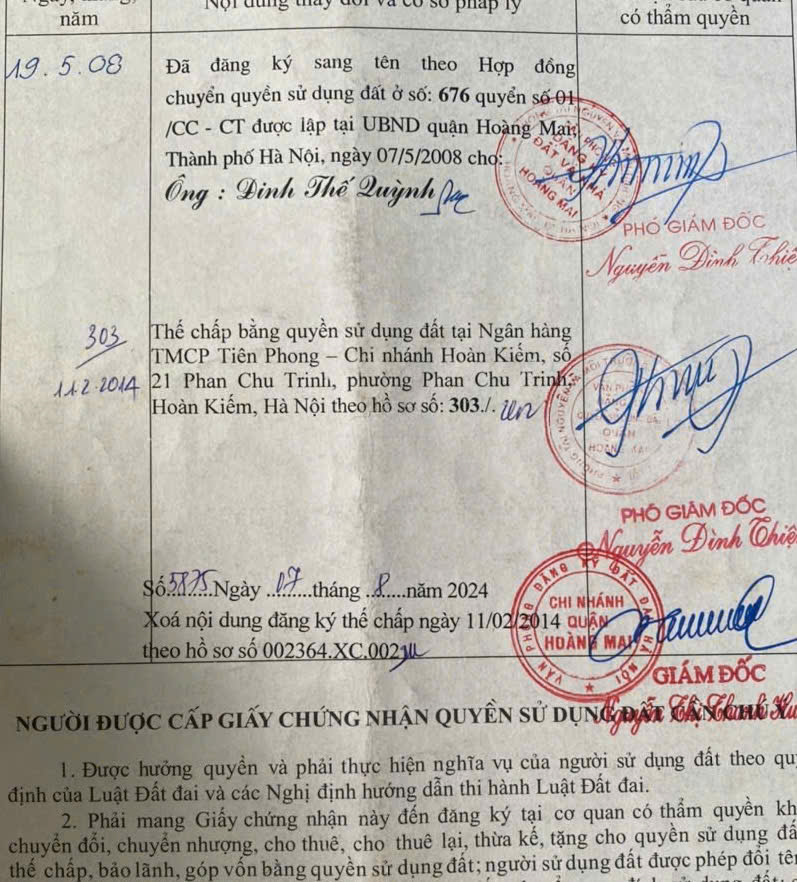 năm
Nội dung thay đổi và cơ sở pháp lý
có thẩm quyền
19.5.08
Đã đăng ký sang tên theo Hợp đồng
chuyển quyền sử dụng đất ở số: 676 quyển số 01
/CC - CT được lập tại UBND quận Hoàng Mai,
Thành phố Hà Nội, ngày 07/5/2008 cho:
Ông : Đinh Thế Quỳnh
ĐẤT VÀ NHÀ
QUẬN
HOÀNG MAI
PHÓ GIÁM ĐỐC
Nguyễn Đình Thiệ
303
11.2.2014
Thế chấp bằng quyền sử dụng đất tại Ngân hàng
TMCP Tiên Phong – Chi nhánh Hoàn Kiếm, số
21 Phan Chu Trinh, phường Phan Chu Trinh,
Hoàn Kiếm, Hà Nội theo hồ sơ số: 303./.
QUẬN
HOÀNG MAI
PHÓ GIÁM ĐỐC
Nguyễn Đình Thiệ
Số 5875 Ngày 07 tháng 8 năm 2024
Xoá nội dung đăng ký thế chấp ngày 11/02/2014
theo hồ sơ số 002364.XC.002
VĂN PHÒNG ĐĂNG KÝ ĐẤT ĐAI HÀ NỘI
CHI NHÁNH
QUẬN
HOÀNG MAI
GIÁM ĐỐC
Nguyễn Thị Thanh
NGƯỜI ĐƯỢC CẤP GIẤY CHỨNG NHẬN QUYỀN SỬ DỤNG ĐẤT CẦN CHÚ Ý
1. Được hưởng quyền và phải thực hiện nghĩa vụ của người sử dụng đất theo quy
định của Luật Đất đai và các Nghị định hướng dẫn thi hành Luật Đất đai.
2. Phải mang Giấy chứng nhận này đến đăng ký tại cơ quan có thẩm quyền kh
chuyển đổi, chuyển nhượng, cho thuê, cho thuê lại, thừa kế, tặng cho quyền sử dụng đấ
thế chấp, bảo lãnh, góp vốn bằng quyền sử dụng đất; người sử dụng đất được phép đổi tê